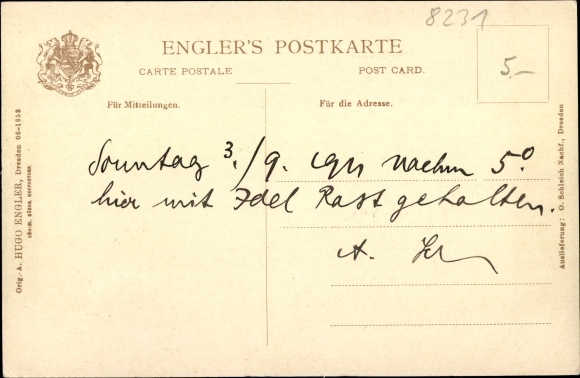 8231
ENGLER'S POSTKARTE
CARTE POSTALE
POST CARD.
5.-
Für Mitteilungen.
Für die Adresse.
Sonntag 3./9. 1911 nachm 5.0
hier mit Idel Rast gehalten.
A.
Orig.-A. HUGO ENGLER, Dresden 06-1853
Auslieferung: O. Schleich Nachf., Dresden